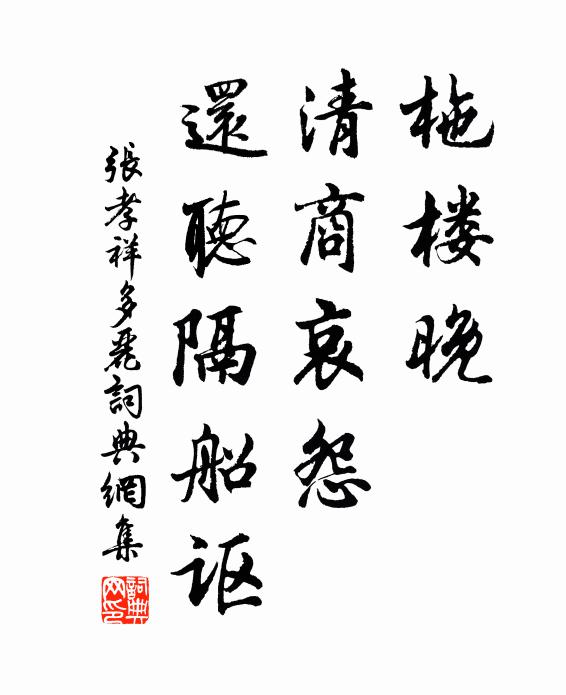 柂楼晚
清商哀怨
還聽隔船讴
張孝祥多麗詞典網集
詞典网印